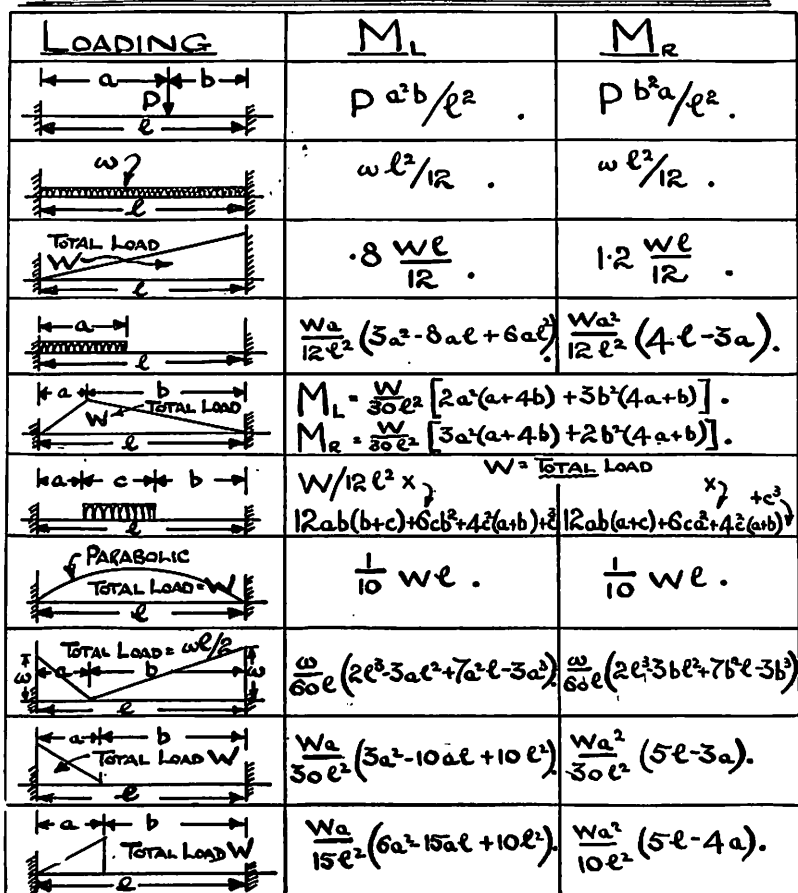 LOADING M_L M_R
a b
P
ℓ
P a²b/ℓ² . P b²a/ℓ² .
ω
ℓ
ωℓ²/12 . ωℓ²/12 .
TOTAL LOAD
W
ℓ
·8 Wℓ/12 . 1·2 Wℓ/12 .
a
ℓ
Wa/12ℓ² (3a²-8aℓ+6aℓ²) Wa²/12ℓ² (4ℓ-3a).
a b
W TOTAL LOAD
ℓ
M_L = W/30ℓ² [2a²(a+4b)+3b²(4a+b)].
M_R = W/30ℓ² [3a²(a+4b)+2b²(4a+b)].
a c b
ℓ
W = TOTAL LOAD
W/12ℓ² x x
12ab(b+c)+6cb²+4c²(a+b)+c³ 12ab(a+c)+6ca²+4c²(a+b) +c³
PARABOLIC
TOTAL LOAD=W
ℓ
1/10 Wℓ . 1/10 Wℓ .
TOTAL LOAD = ωℓ/2
ω a b ω
ℓ
ω/60ℓ (2ℓ³-3aℓ²+7a²ℓ-3a³) ω/60ℓ (2ℓ³-3bℓ²+7b²ℓ-3b³)
a b
TOTAL LOAD W
ℓ
Wa/30ℓ² (3a²-10aℓ+10ℓ²) Wa²/30ℓ² (5ℓ-3a).
a b
TOTAL LOAD W
ℓ
Wa/15ℓ² (6a²-15aℓ+10ℓ²). Wa²/10ℓ² (5ℓ-4a).